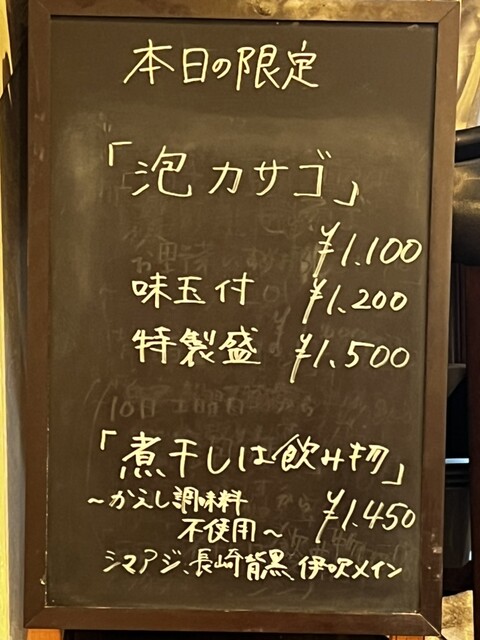 本日の限定
「泡カサゴ」
¥1.100
味玉付 ¥1.200
特製盛 ¥1.500
「煮干しは飲み物」
～かえし調味料 ¥1.450
不使用～
シマアジ、長崎背黒、伊吹メイン